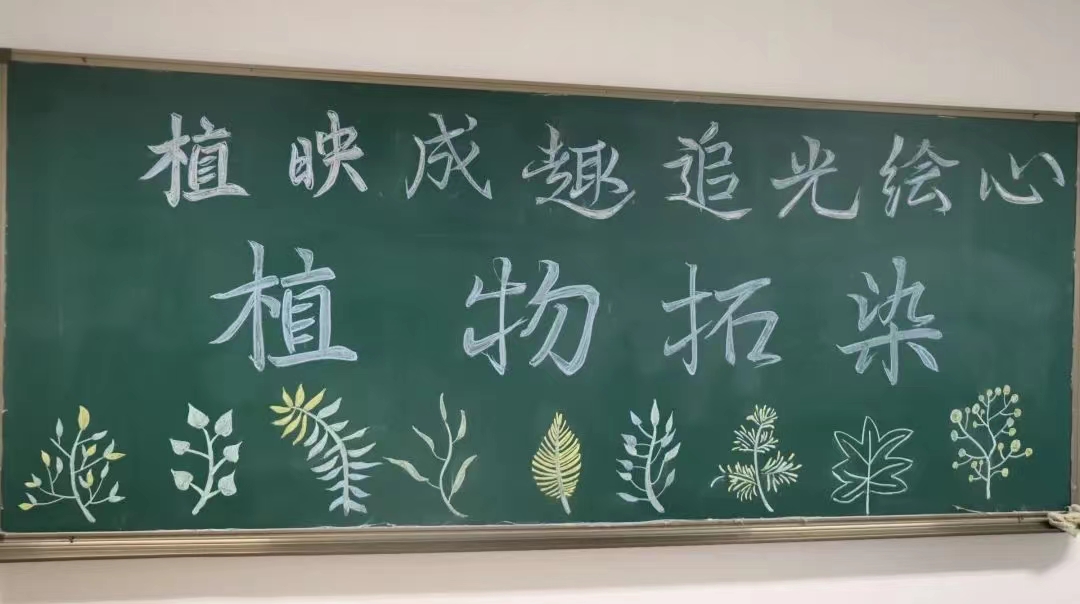 植映成趣追光绘心
植物拓染